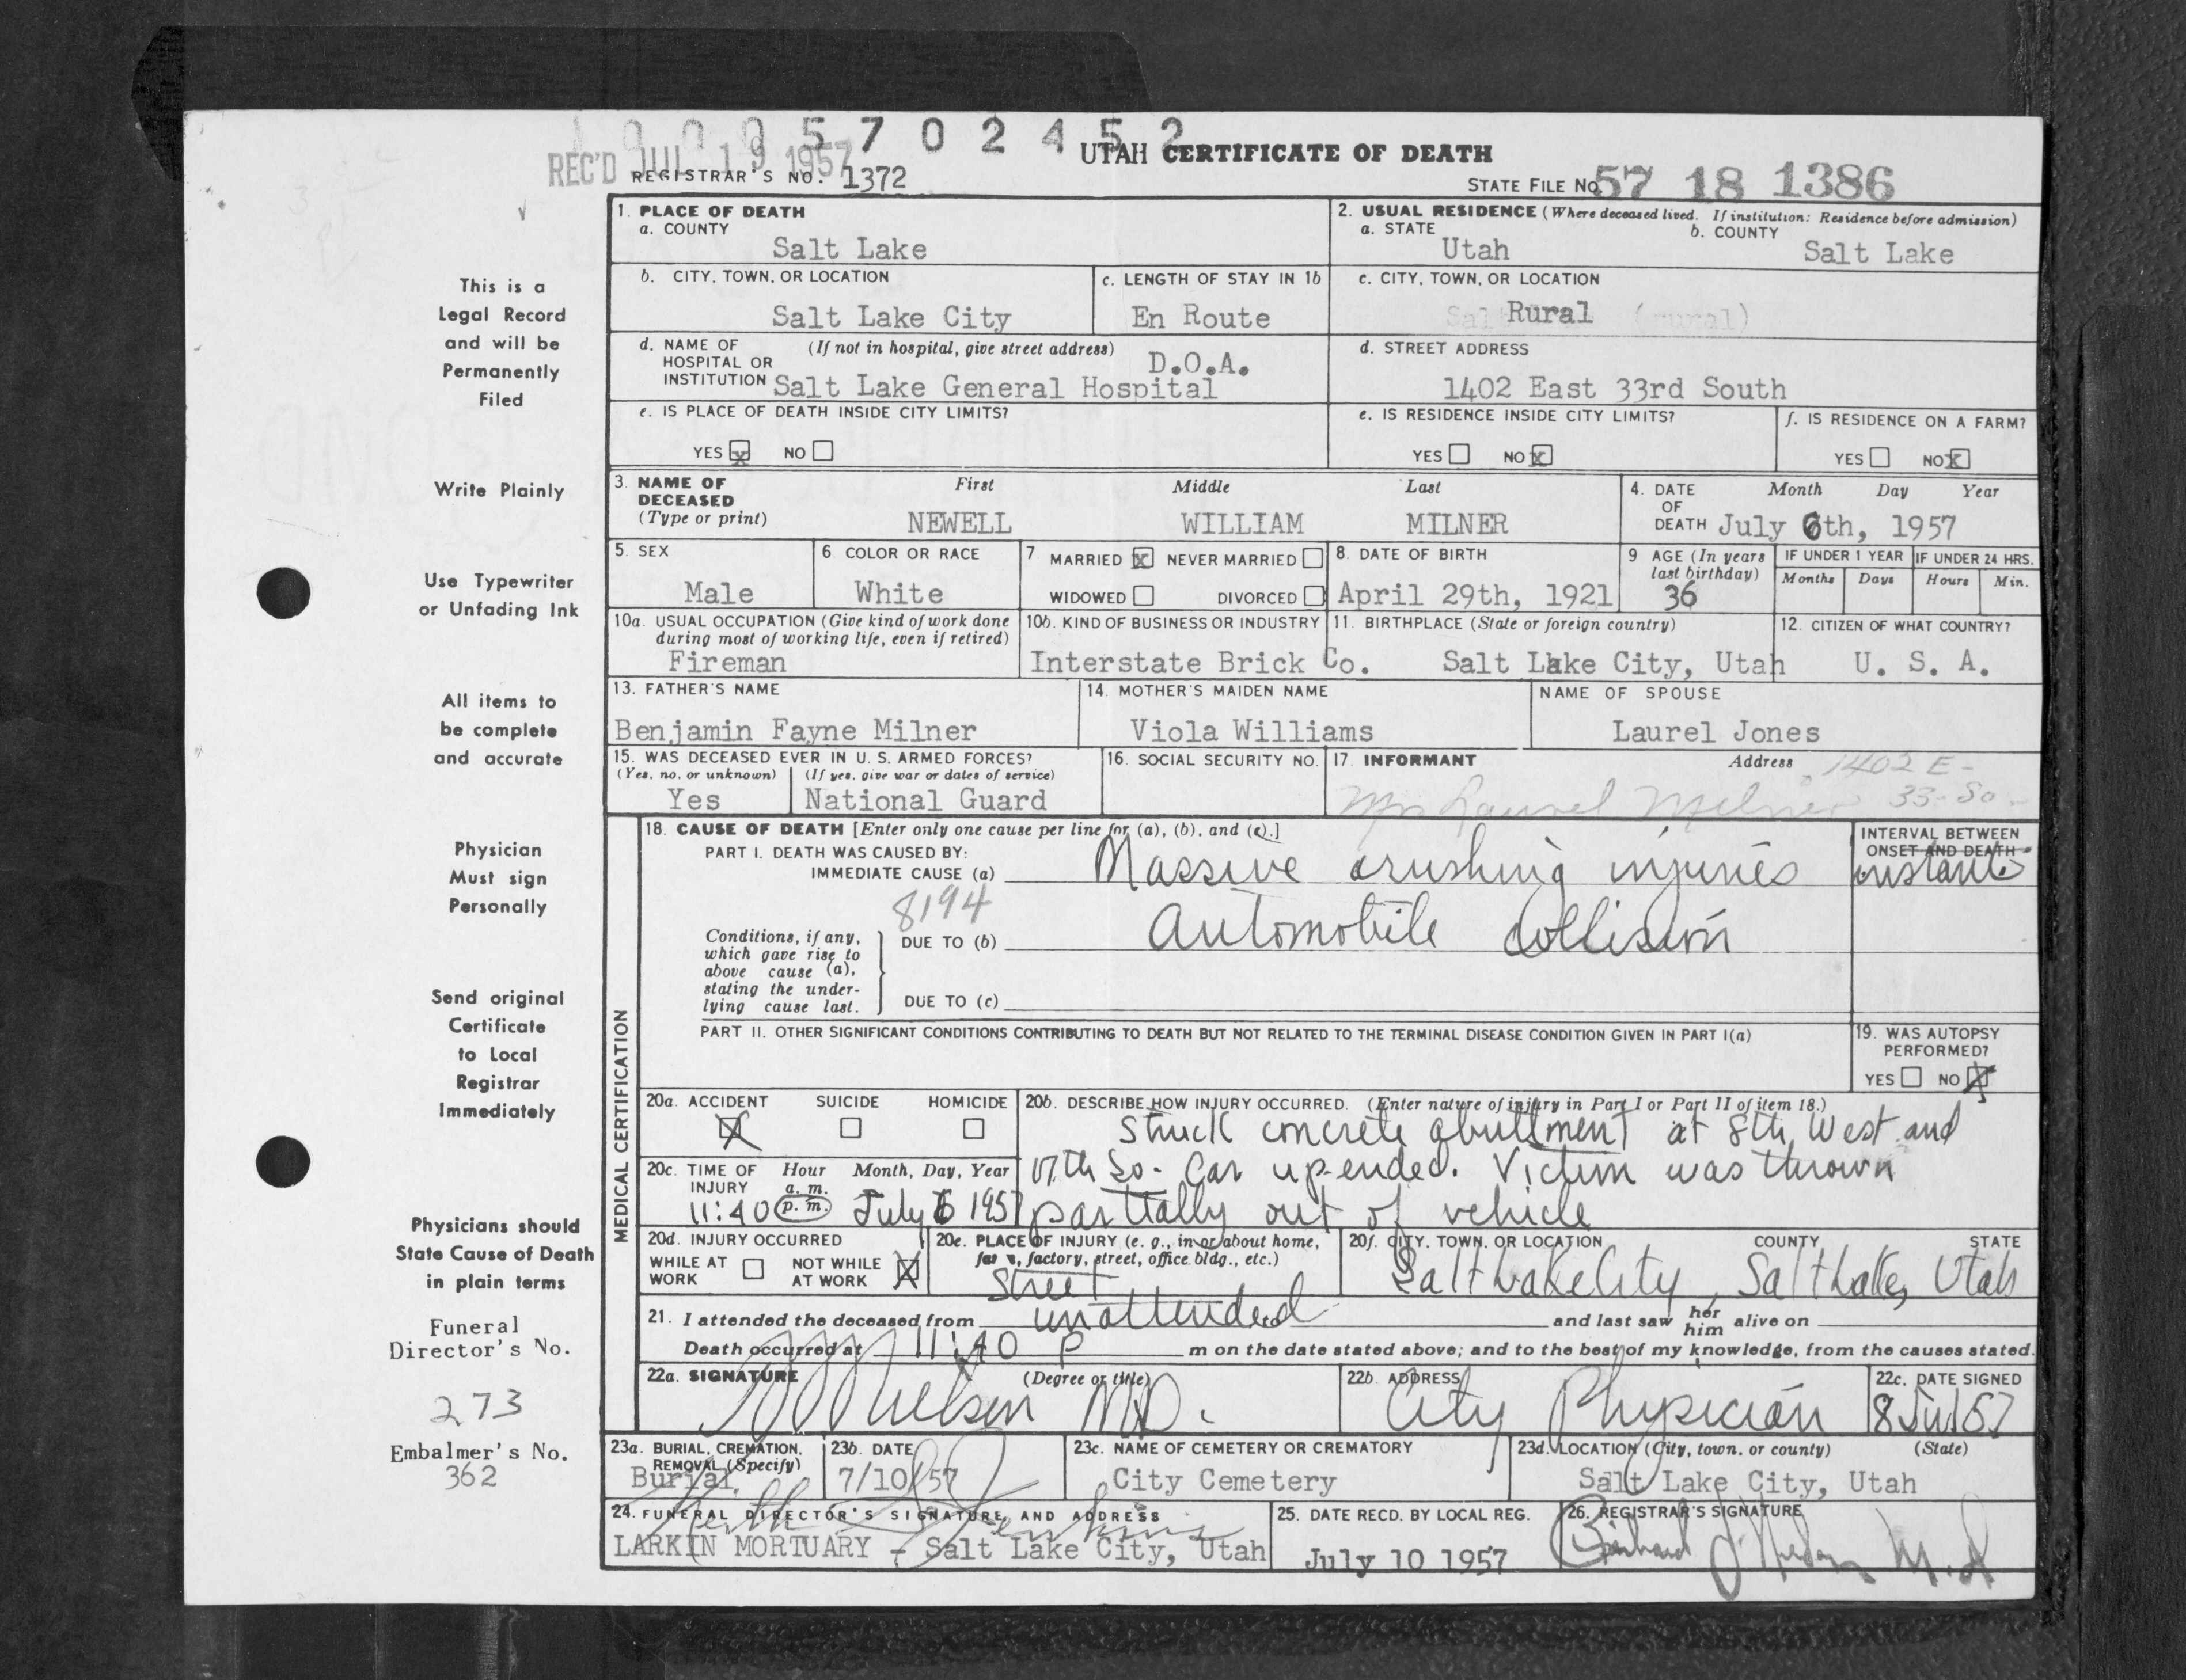 1 0 0 0 5 7 0 2 4 5 2
REC'D JUL 19 1957
UTAH CERTIFICATE OF DEATH
REGISTRAR'S NO. 1372
STATE FILE NO. 57 18 1386
1. PLACE OF DEATH
a. COUNTY
Salt Lake
2. USUAL RESIDENCE (Where deceased lived. If institution: Residence before admission)
a. STATE
Utah
b. COUNTY
Salt Lake
b. CITY, TOWN, OR LOCATION
Salt Lake City
c. LENGTH OF STAY IN 1b
En Route
c. CITY, TOWN, OR LOCATION
Rural (rural)
d. NAME OF HOSPITAL OR INSTITUTION
(If not in hospital, give street address)
D.O.A.
Salt Lake General Hospital
d. STREET ADDRESS
1402 East 33rd South
e. IS PLACE OF DEATH INSIDE CITY LIMITS?
YES x NO
e. IS RESIDENCE INSIDE CITY LIMITS?
YES NO x
f. IS RESIDENCE ON A FARM?
YES NO x
3. NAME OF DECEASED
(Type or print)
First Middle Last
NEWELL WILLIAM MILNER
4. DATE OF DEATH
Month Day Year
July 6th, 1957
5. SEX
Male
6. COLOR OR RACE
White
7 MARRIED x NEVER MARRIED
WIDOWED DIVORCED
8. DATE OF BIRTH
April 29th, 1921
9 AGE (In years last birthday)
36
IF UNDER 1 YEAR
Months Days
IF UNDER 24 HRS.
Hours Min.
10a. USUAL OCCUPATION (Give kind of work done
during most of working life, even if retired)
Fireman
10b. KIND OF BUSINESS OR INDUSTRY
Interstate Brick Co.
11. BIRTHPLACE (State or foreign country)
Salt Lake City, Utah
12. CITIZEN OF WHAT COUNTRY?
U. S. A.
13. FATHER'S NAME
Benjamin Fayne Milner
14. MOTHER'S MAIDEN NAME
Viola Williams
NAME OF SPOUSE
Laurel Jones
15. WAS DECEASED EVER IN U. S. ARMED FORCES?
(Yes, no, or unknown) (If yes, give war or dates of service)
Yes National Guard
16. SOCIAL SECURITY NO.
17. INFORMANT Address
Mrs Laurel Milner 1402 E-
33-So-
MEDICAL CERTIFICATION
18. CAUSE OF DEATH [Enter only one cause per line for (a), (b), and (c).]
PART I. DEATH WAS CAUSED BY:
IMMEDIATE CAUSE (a) Massive crushing injuries
INTERVAL BETWEEN
ONSET AND DEATH
8194
Conditions, if any,
which gave rise to
above cause (a),
stating the under-
lying cause last.
DUE TO (b) Automobile collision
DUE TO (c)
PART II. OTHER SIGNIFICANT CONDITIONS CONTRIBUTING TO DEATH BUT NOT RELATED TO THE TERMINAL DISEASE CONDITION GIVEN IN PART I(a)
19. WAS AUTOPSY
PERFORMED?
YES NO X
20a. ACCIDENT SUICIDE HOMICIDE
X
20b. DESCRIBE HOW INJURY OCCURRED. (Enter nature of injury in Part I or Part II of item 18.)
Struck concrete abuttment at 8th West and
17th So- Car up-ended. Victim was thrown
partially out of vehicle
20c. TIME OF INJURY
Hour Month, Day, Year
a. m.
11:40 p. m. July 6 1957
20d. INJURY OCCURRED
WHILE AT WORK
NOT WHILE AT WORK X
20e. PLACE OF INJURY (e. g., in or about home,
farm, factory, street, office bldg., etc.)
Street
20f. CITY, TOWN, OR LOCATION COUNTY STATE
Salt Lake City, Salt Lake, Utah
21. I attended the deceased from unattended and last saw her him alive on
Death occurred at 11:40 P m on the date stated above; and to the best of my knowledge, from the causes stated.
22a. SIGNATURE (Degree or title)
Nielsen M.D.
22b. ADDRESS
City Physician
22c. DATE SIGNED
8 Jul 57
23a. BURIAL, CREMATION,
REMOVAL (Specify)
Burial
23b. DATE
7/10/57
23c. NAME OF CEMETERY OR CREMATORY
City Cemetery
23d. LOCATION (City, town, or county) (State)
Salt Lake City, Utah
24. FUNERAL DIRECTOR'S SIGNATURE, AND ADDRESS
LARKIN MORTUARY - Salt Lake City, Utah
25. DATE RECD. BY LOCAL REG.
July 10 1957
26. REGISTRAR'S SIGNATURE
M.D
This is a
Legal Record
and will be
Permanently
Filed
Write Plainly
Use Typewriter
or Unfading Ink
All items to
be complete
and accurate
Physician
Must sign
Personally
Send original
Certificate
to Local
Registrar
Immediately
Physicians should
State Cause of Death
in plain terms
Funeral
Director's No.
273
Embalmer's No.
362